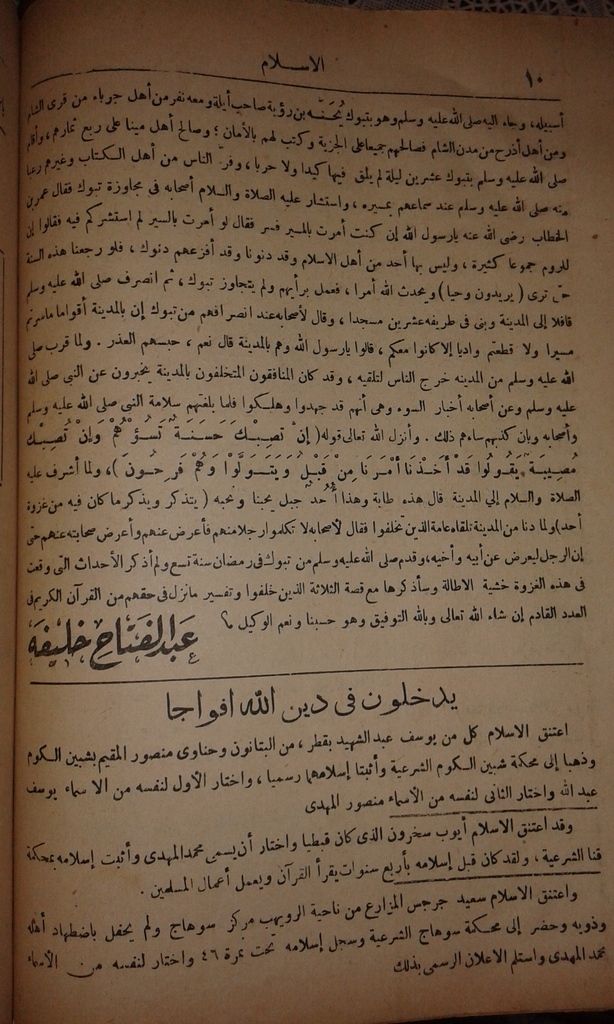 الاسلام
١٠
أسبيله، وجاء اليه صلى الله عليه وسلم وهو بتبوك يُحَنَّه بن رؤبة صاحب أيلة ومعه نفر من أهل جرباء من قرى الشام
ومن أهل أذرح من مدن الشام فصالحهم جميعا على الجزية وكتب لهم بالأمان ؛ وصالح أهل مينا على ربع ثمارهم، وأقام
صلى الله عليه وسلم بتبوك عشرين ليلة لم يلق فيها كيدا ولا حربا، وفرّ الناس من أهل الكتاب وغيرهم رعبا
منه صلى الله عليه وسلم عند سماعهم بمسيره، واستشار عليه الصلاة والسلام أصحابه فى مجاوزة تبوك فقال عمر بن
الخطاب رضى الله عنه يارسول الله إن كنت أمرت بالمسير فسر فقال لو أمرت بالسير لم استشركم فيه فقالوا إن
للروم جموعا كثيرة، وليس بها أحد من أهل الاسلام وقد دنونا وقد أفزعهم دنوك، فلو رجعنا هذه السنة
حتى ترى (يريدون وحيا) ويحدث الله أمرا، فعمل برأيهم ولم يتجاوز تبوك، ثم انصرف صلى الله عليه وسلم
قافلا إلى المدينة وبنى فى طريقه عشرين مسجدا، وقال لأصحابه عند انصرافهم من تبوك إن بالمدينة أقواما ماسرتم
مسيرا ولا قطعتم واديا إلا كانوا معكم، قالوا يارسول الله وهم بالمدينة قال نعم، حبسهم العذر. ولما قرب صلى
الله عليه وسلم من المدينه خرج الناس لتلقيه، وقد كان المنافقون المتخلفون بالمدينة يخبرون عن النبى صلى الله
عليه وسلم وعن أصحابه أخبار السوء وهى أنهم قد جهدوا وهلكوا فلما بلغهم سلامة النبى صلى الله عليه وسلم
وأصحابه وبان كذبهم ساءهم ذلك. وأنزل الله تعالى قوله (إنْ تُصِبْكَ حَسَنَةٌ تَسُؤْهُمْ وَإنْ تُصِبْكَ
مُصِيبَةٌ يَقُولُوا قَدْ أَخَذْنَا أَمْرَنَا مِنْ قَبْلُ وَيَتَوَلَّوْا وَهُمْ فَرِحُونَ)، ولما أشرف عليه
الصلاة والسلام إلى المدينة قال هذه طابة وهذا أُحُد جبل يحبنا ونحبه (يتذكر ويذكر ما كان فيه من غزوة
أحد) ولما دنا من المدينة تلقاه عامة الذين تخلفوا فقال لأصحابه لا تكلموا رجلا منهم فأعرض عنهم وأعرض صحابته عنهم حتى
إن الرجل ليعرض عن أبيه وأخيه، وقدم صلى الله عليه وسلم من تبوك فى رمضان سنة تسع ولم أذكر الأحداث التى وقعت
فى هذه الغزوة خشية الاطالة وسأذكرها مع قصة الثلاثة الذين خلفوا وتفسير مانزل فى حقهم من القرآن الكريم فى
العدد القادم إن شاء الله تعالى وبالله التوفيق وهو حسبنا ونعم الوكيل ؟
عبد الفتاح خليفه
يدخلون فى دين الله افواجا
اعتنق الاسلام كل من يوسف عبد الشهيد بقطر، من البتانون وحناوى منصور المقيم بشبين الكوم
وذهبا إلى محكمة شبين الكوم الشرعية وأثبتا إسلامهما رسميا، واختار الأول لنفسه من الاسماء يوسف
عبد الله واختار الثانى لنفسه من الأسماء منصور المهدى
وقد اعتنق الاسلام أيوب سخرون الذى كان قبطيا واختار أن يسمى محمد المهدى وأثبت إسلامه بمحكمة
قنا الشرعية، ولقد كان قبل إسلامه بأربع سنوات يقرأ القرآن ويعمل أعمال المسلمين.
واعتنق الاسلام سعيد جرجس المزارع من ناحية الرويهب مركز سوهاج ولم يحفل باضطهاد أهله
وذويه وحضر إلى محكمة سوهاج الشرعية وسجل إسلامه تحت نمرة ٤٦ واختار لنفسه من الأسماء
محمد المهدى واستلم الاعلان الرسمى بذلك